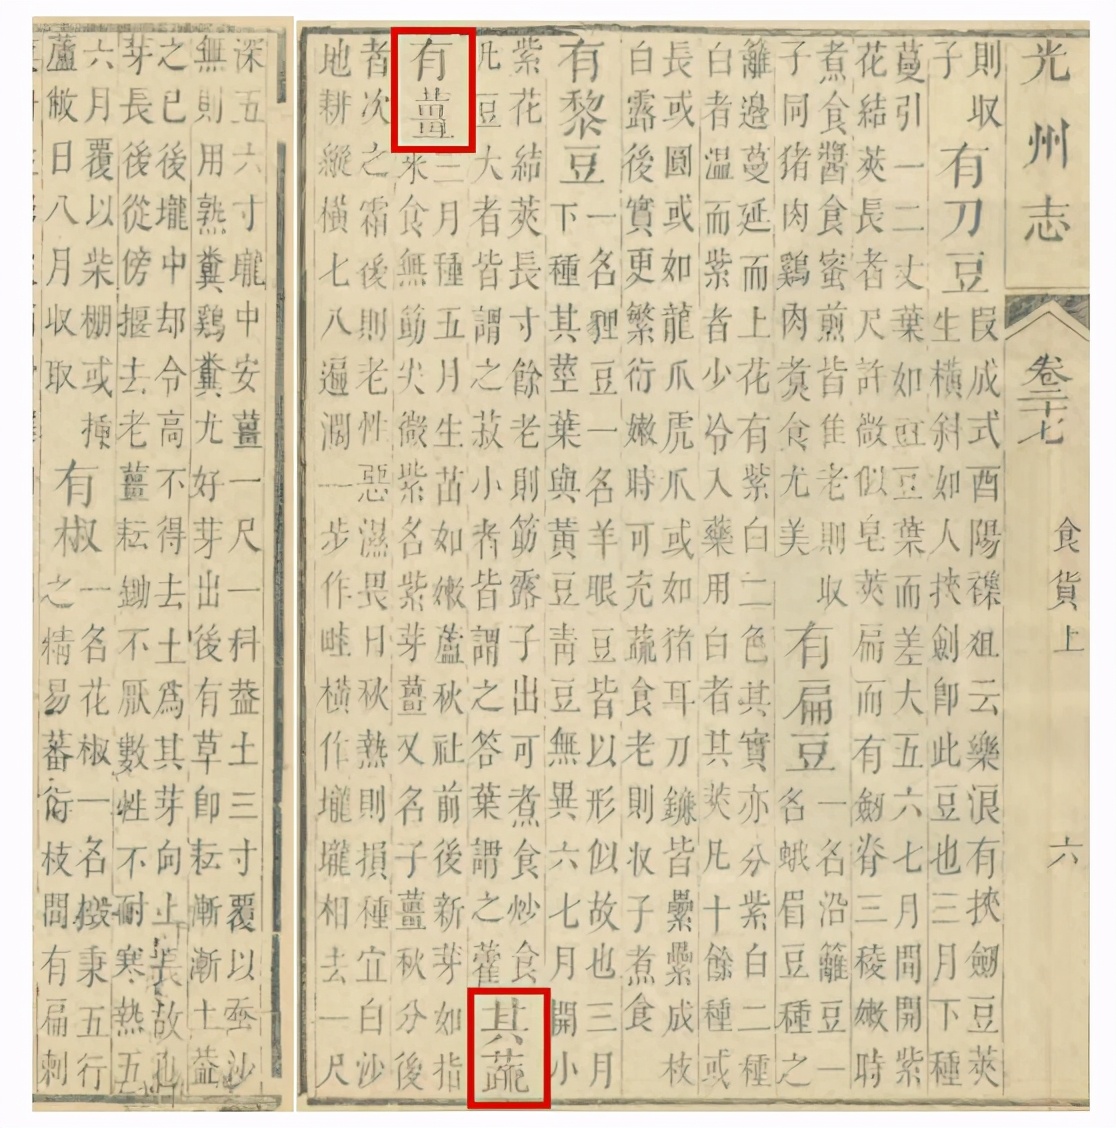 光州志 卷二十七 食貨上 六
則取
子
有刀豆
段成式酉陽襍俎云樂浪有挾劒豆莢
生橫斜如人挾劍卽此豆也三月下種
蔓引一二丈葉如豇豆葉而差大五六七月間開紫
花結莢長者尺許微似皂莢扁而有劒脊三稜嫩時
煮食醬食蜜煎皆佳老則取
子同猪肉鷄肉煑食尤美
有扁豆
一名沿籬豆一
名蛾眉豆種之
籬邊蔓延而上花有紫白二色其實亦分紫白二種
白者温而紫者少冷入藥用白者其莢凡十餘種或
長或圓或如龍爪虎爪或如猪耳刀鐮皆纍纍成枝
白露後實更繁衍嫩時可充蔬食老則收子煮食
有黎豆
一名貍豆一名羊眼豆皆以形似故也三月
下種其莖葉與黃豆靑豆無異六七月開小
紫花結莢長寸餘老則筋露子出可煮食炒食
凡豆大者皆謂之菽小者皆謂之荅葉謂之藿
其蔬
有薑
三月種五月生苗如嫩蘆秋社前後新芽如指
采食無筋尖微紫名紫芽薑又名子薑秋分後
者次之霜後則老性惡濕畏日秋熱則損種宜白沙
地耕縱橫七八遍濶一步作畦橫作壠壠相去一尺
深五六寸壠中安薑一尺一科葢土三寸覆以蚕沙
無則用熟糞鷄糞尤好芽出後有草卽耘漸漸土葢
之已後壠中却令高不得去土爲其芽向上長故也
芽長後從傍揠去老薑耘鋤不厭數性不耐寒熱五
六月覆以柴棚或種
蘆敝日八月收取
有椒
一名花椒一名檓秉五行
之精易蕃衍枝間有扁刺